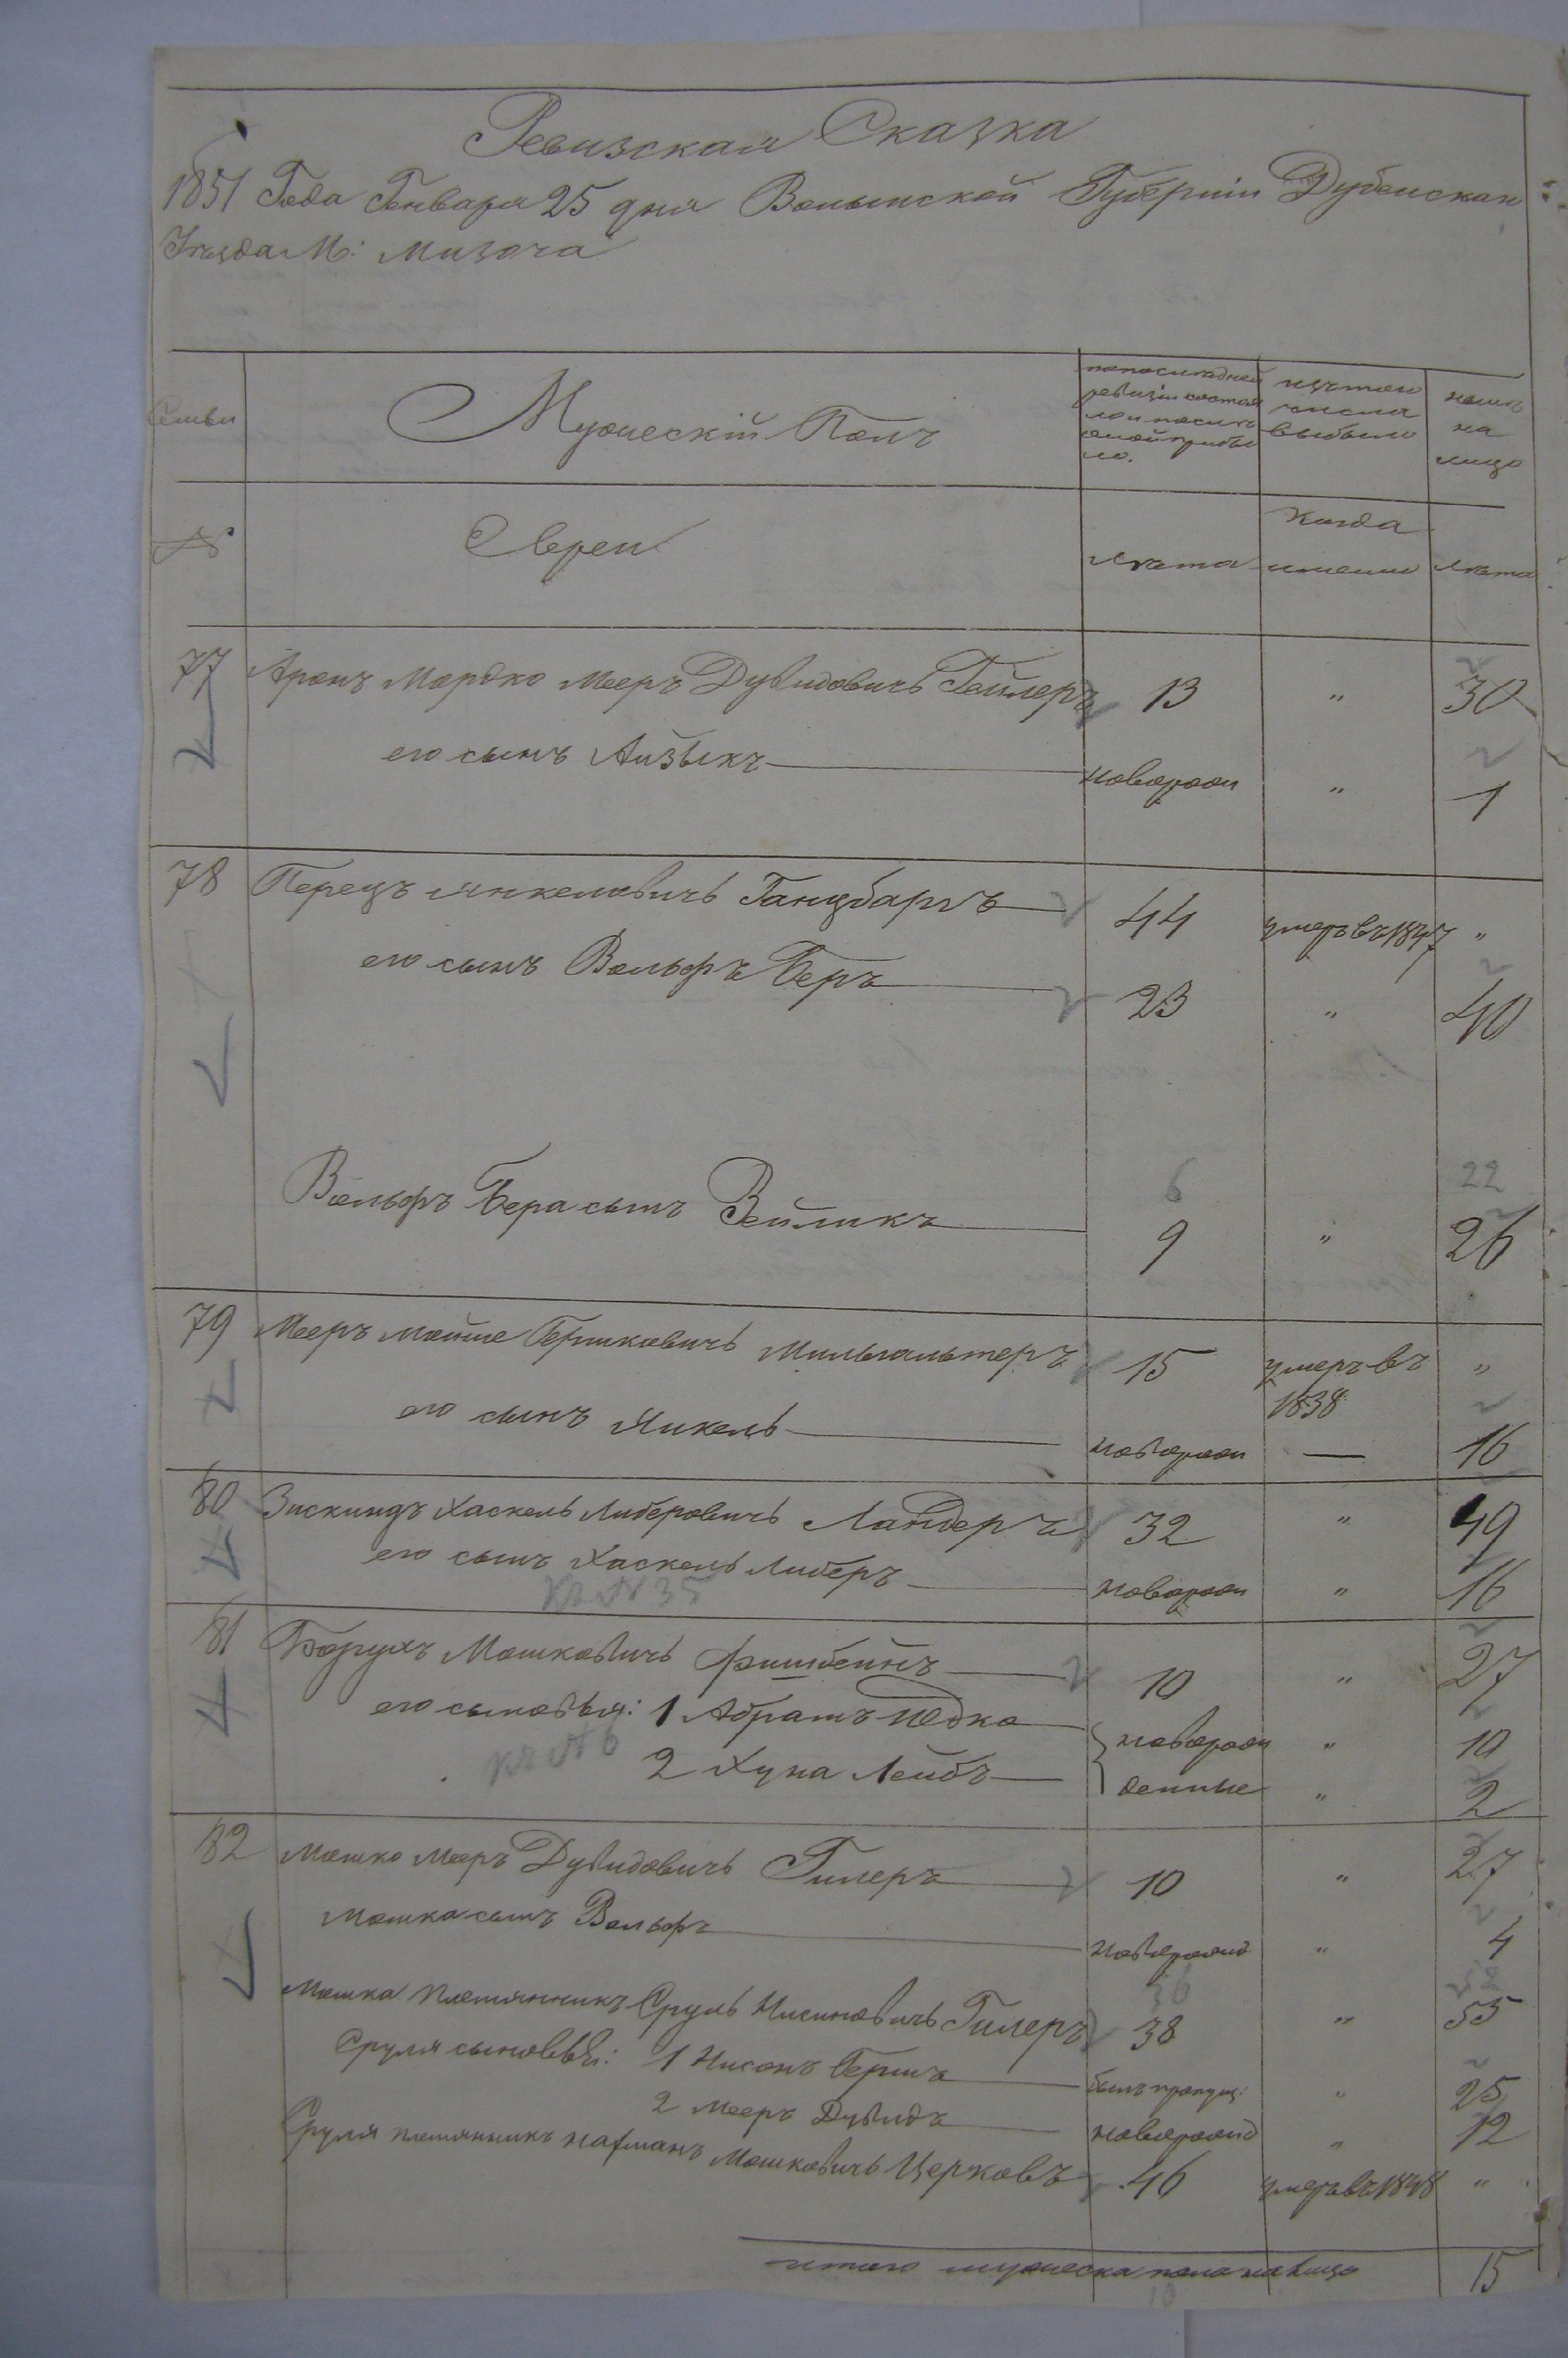 Ревизская Сказка
1851 Года Генваря 25 дня Волынской Губернiи Дубенскаго
Уѣзда М: Мизоча
Семьи
Мужескiй Полъ
по последней ревизiи состояло и после оной прибыло.
изъ того числа выбыло
ныне на лицо
№
Евреи
лѣта
когда именно
лѣта
77 Аронъ Мордко Мееръ Дувидовичь Гейлеръ 13 " 30
его сынъ Айзыкъ новорож " 1
78 Перецъ Янкелевичь Ганцбаргъ 44 умеръ въ 1847 "
его сынъ Вольфъ Беръ 23 " 40
6 22
Вольфъ Бера сынъ Зейликъ 9 " 26
79 Мееръ Мойше Бершковичь Мильгальтеръ 15 умеръ въ 1838 "
его сынъ Янкель новорож — 16
80 Зискиндъ Хаскель Либеровичь Ландеръ 32 " 49
его сынъ Хаскель Либеръ новорож " 16
№ 35
81 Борухъ Мошковичь Фишбейнъ 10 " 27
его сыновья: 1 Абрамъ Юдко новорож " 10
2 Хуна Лейбъ денные " 2
№ 6
82 Мошко Мееръ Дувидовичь Гилеръ 10 " 27
Мошка сынъ Вольфъ новорожд " 4
36
Мошка племянникъ Сруль Нисиновичь Гилеръ 38 " 55
Сруля сыновья: 1 Нисонъ Бершъ былъ пропущ: " 25
2 Мееръ Дувидъ новорожд " 12
Сруля племянникъ Нахманъ Мошковичь Церковъ 46 умеръ въ 1848 "
итого мужеска пола на лицо 15
10